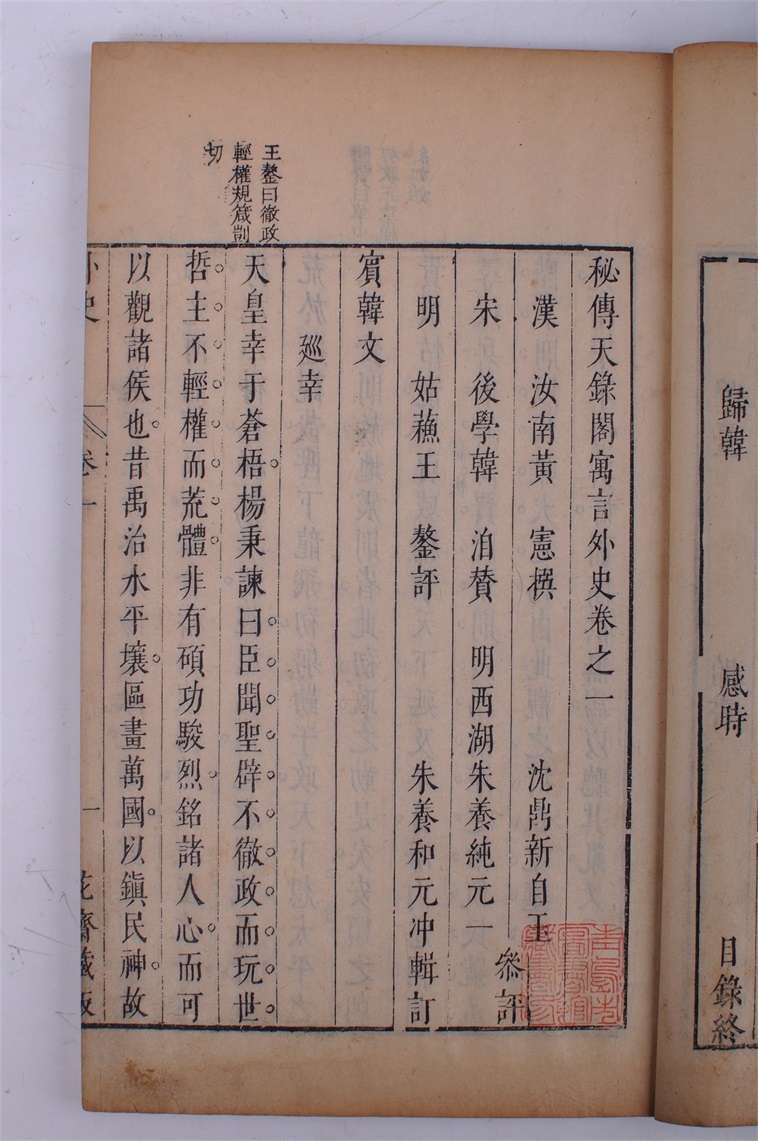 歸韓
感時
目錄終
秘傳天錄閣寓言外史卷之一
漢 汝南黃 憲撰 沈鼎新自玉
宋 後學韓 洎贊 明西湖朱養純元一 叅評
明 姑蘓王 鏊評 朱養和元冲輯訂
賓韓文
廵幸
王鏊曰徹政
輕權規箴剴
切
天皇幸于蒼梧楊秉諫曰臣聞聖辟不徹政而玩世
哲主不輕權而荒體非有碩功駿烈銘諸人心而可
以觀諸侯也昔禹治水平壤區畫萬國以鎮民神故
外史 卷一 一 花齋藏板